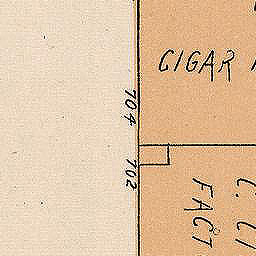 CIGAR
704
702
C. CI
FACT